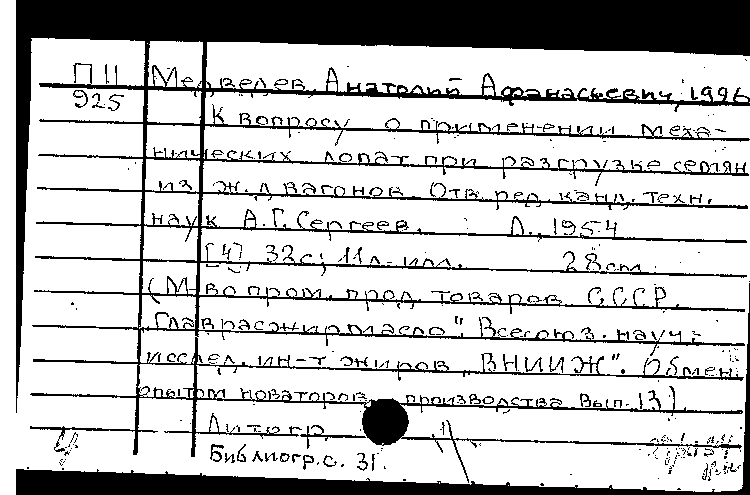 П 11 Медведев, Анатолий Афанасьевич, 1996
925
К вопросу о применении меха-
нических лопат при разгрузке семян
из ж.д вагонов Отв. ред. канд. техн.
наук А.Г. Сергеев. Л., 1954
[4], 32с; 11л. илл. 28см.
(М-во пром. прод. товаров СССР.
"Главрасжирмасло". Всесоюз. науч.-
исслед. ин-т жиров "ВНИИЖ". Обмен
опытом новаторов производства Вып. 13)
Литогр.
Библиогр. с. 31.